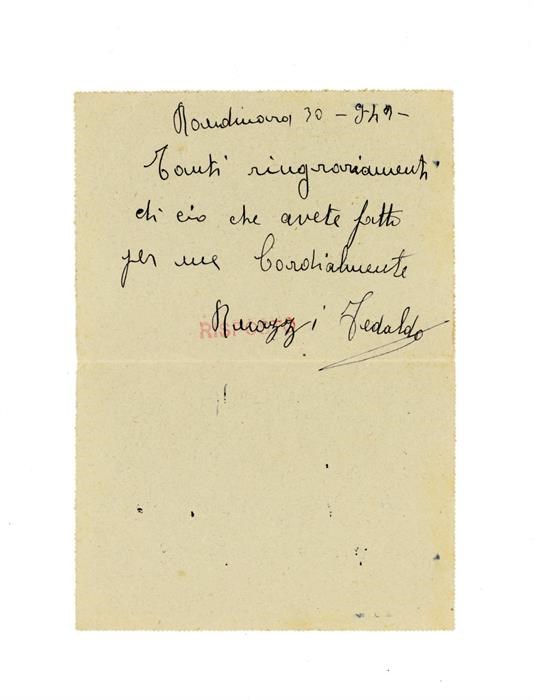 Ramdinara 30 - 9-47-
Tanti ringraziamenti
di ciò che avete fatto
per me Cordialmente
Tedaldo